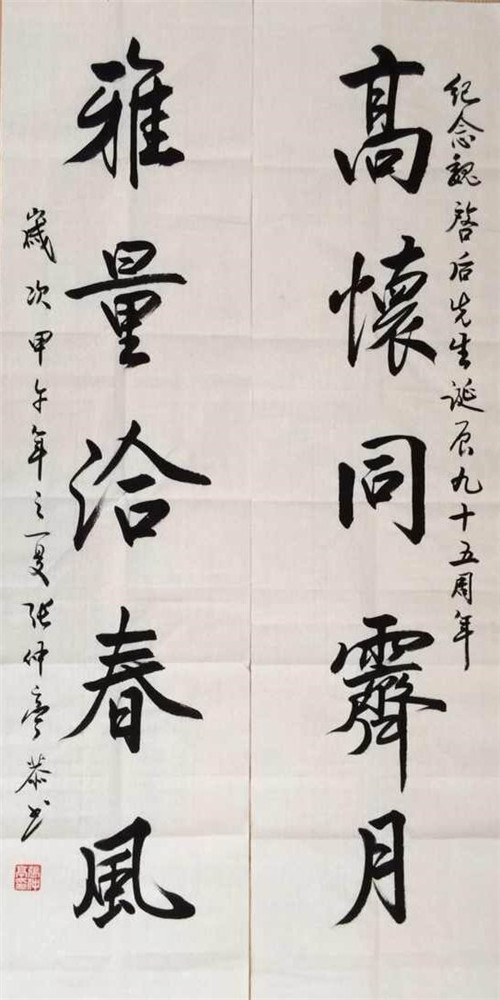 纪念魏啓后先生诞辰九十五周年
髙懷同霽月
雅量洽春風
歲次甲午年之夏张仲亭恭书